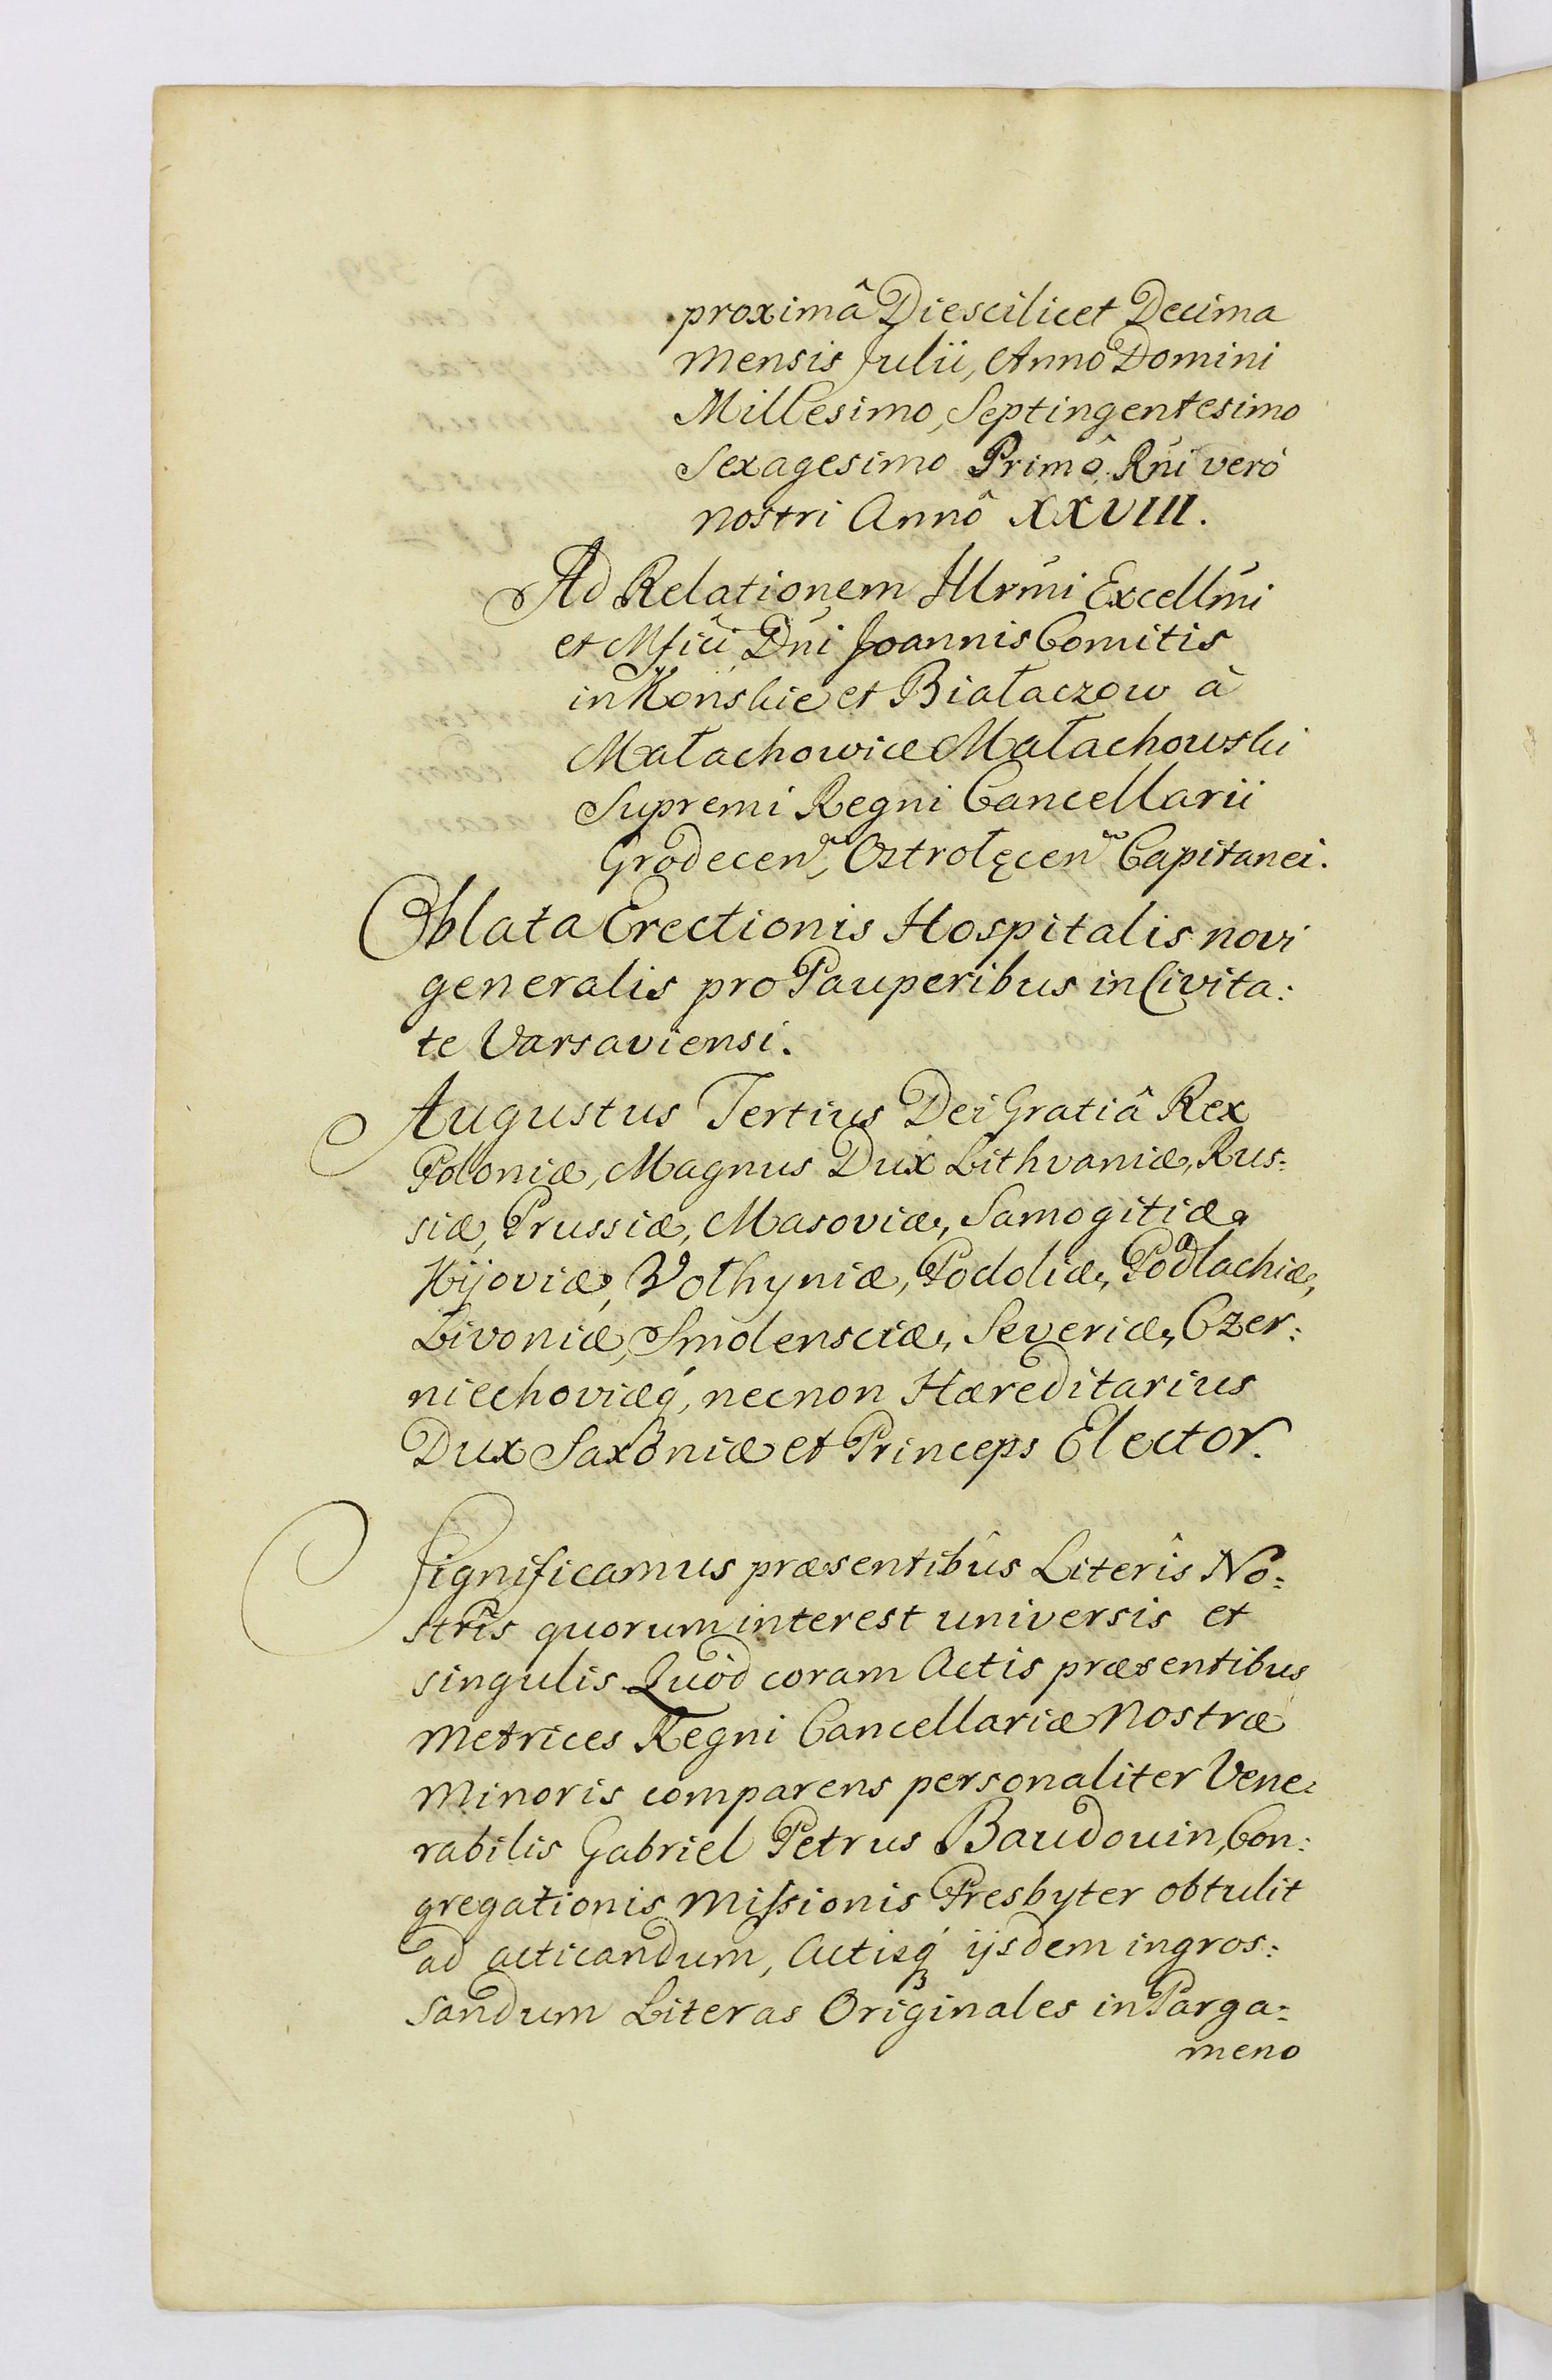 proximâ Die scilicet Decima
Mensis Julii, Anno Domini
Millesimo, Septingentesimo
Sexagesimo Primô, Rñi verò
nostri Annô XXVIII.
Ad Relationem Illrmi Excellmi
et Mfici Dñi Joannis Comitis
in Końskie et Białaczow â
Małachowice Małachowski
Supremi Regni Cancellarii
Grodecen, Ostrołęcen Capitanei.
Oblata Erectionis Hospitalis novi
generalis pro Pauperibus in Civita:
te Varsaviensi.
Augustus Tertius Dei Gratiâ Rex
Poloniæ, Magnus Dux Lithvaniæ, Rus:
siæ, Prussiæ, Masoviæ, Samogitiæ,
Kijoviæ, Volhyniæ, Podoliæ, Podlachiæ,
Livoniæ, Smolensciæ, Severiæ, Czer:
niechoviæq́, necnon Hæreditarius
Dux Saxoniæ et Princeps Elector.
Significamus præsentibûs Literîs No:
strîs quorum interest universis et
singulis. Quòd coram Actis præsentibus
Metrices Regni Cancellariæ Nostræ
Minoris comparens personaliter Vene:
rabilis Gabriel Petrus Baudouin, Con:
gregationis Missionis Presbyter obtulit
ad acticandum, Actisq́ ijsdem ingros:
sandum Literas Originales in Parga:
meno